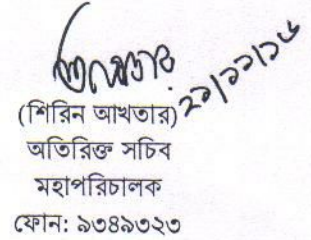 ২১/১১/১৬
(শিরিন আখতার)
অতিরিক্ত সচিব
মহাপরিচালক
ফোন: ৯৩৪৯৩২৩